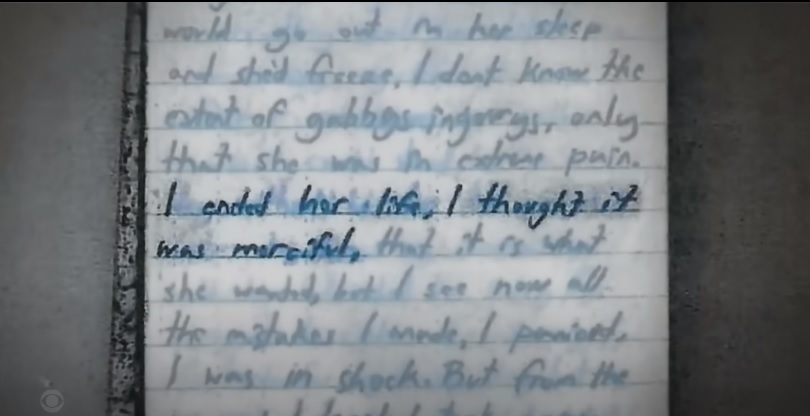 world go out in her sleep
and she'd freeze. I dont know the
extent of gabbys ingurys, only
that she was in extreme pain.
I ended her life, I thought it
was merciful, that it is what
she wanted, but I see now all
the mistakes I made, I paniced,
I was in shock. But from the